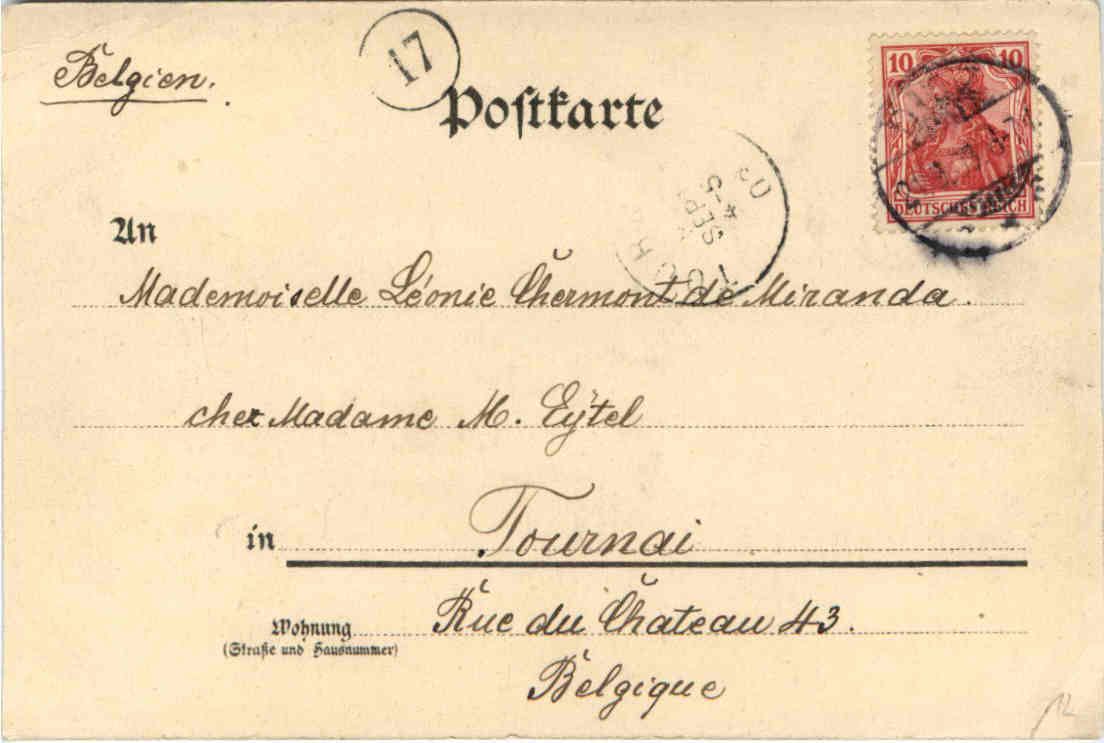 Belgien.
17
Postkarte
10 10
DEUTSCHES REICH
SEPT
5
03
An
Mademoiselle Léonie Chermont de Miranda.
chez Madame M. Eÿtel
in Tournai
Wohnung Rue du Chateau 43.
(Straße und Hausnummer)
Belgique
12